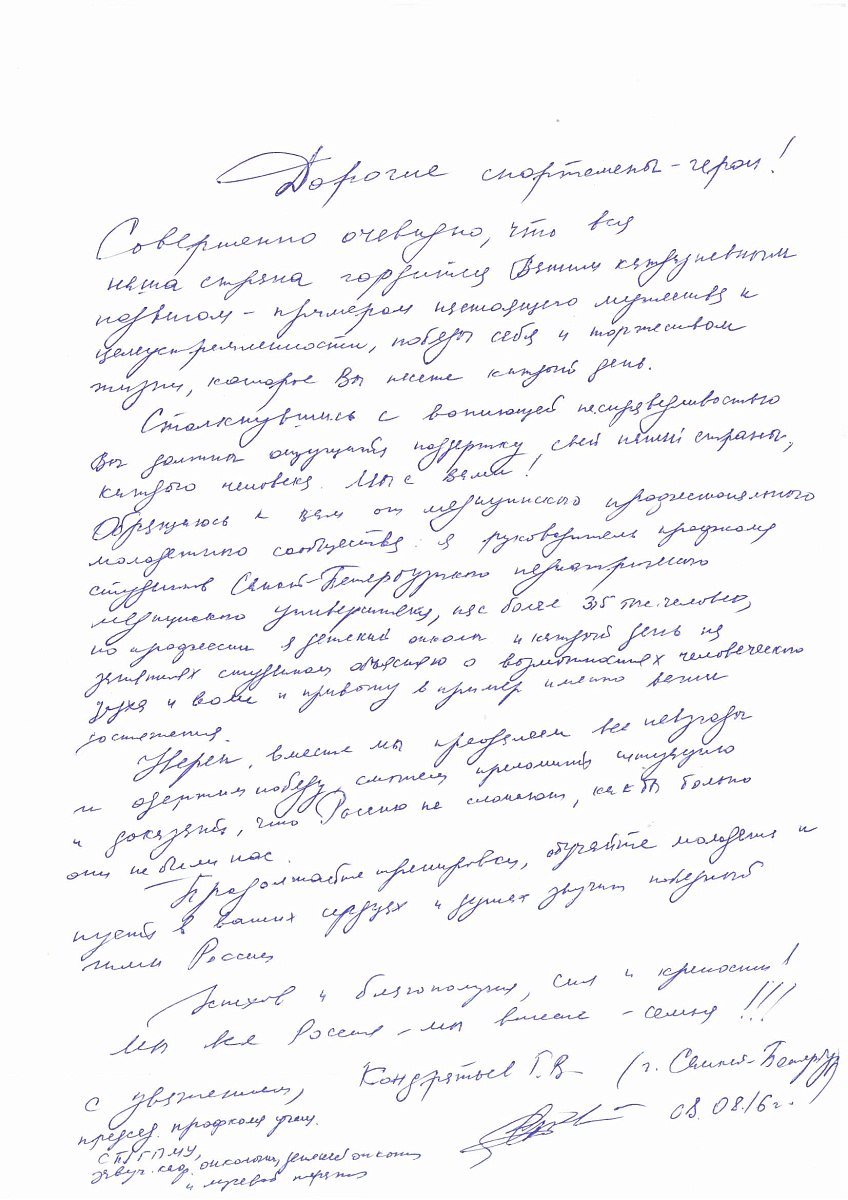 Дорогие спортсмены-герои!
Совершенно очевидно, что вся
наша страна гордится Вашим каждодневным
подвигом - примером настоящего мужества и
целеустремленности, победы себя и торжеством
жизни, которое Вы несете каждый день.
Столкнувшись с вопиющей несправедливостью
Вы должны ощущать поддержку всей нашей страны,
каждого человека. Мы с Вами!
Обращаюсь к Вам от медицинского профессионального
молодежного сообщества: я руководитель профкома
студентов Санкт-Петербургского педиатрического
медицинского университета, нас более 3,5 тыс. человек,
по профессии я детский онколог и каждый день на
занятиях студентам объясняю о возможностях человеческого
духа и воли и привожу в пример именно ваши
достижения.
Уверен, вместе мы преодолеем все невзгоды
и одержим победу, сможем переломить ситуацию
и доказать, что Россию не сломают, как бы больно
они не били нас.
Продолжайте тренировки, обучайте молодежь и
пусть в ваших сердцах и душах звучит победный
гимн России
Успехов и благополучия, сил и крепости!
Мы вся Россия - мы вместе - семья!!!
С уважением, Кондратьев Г.В. (г. Санкт-Петербург)
председ. профкома учащ. 08.08.16г.
СПбГПМУ,
завуч. каф. онкологии, детской онкологии
и лучевой терапии